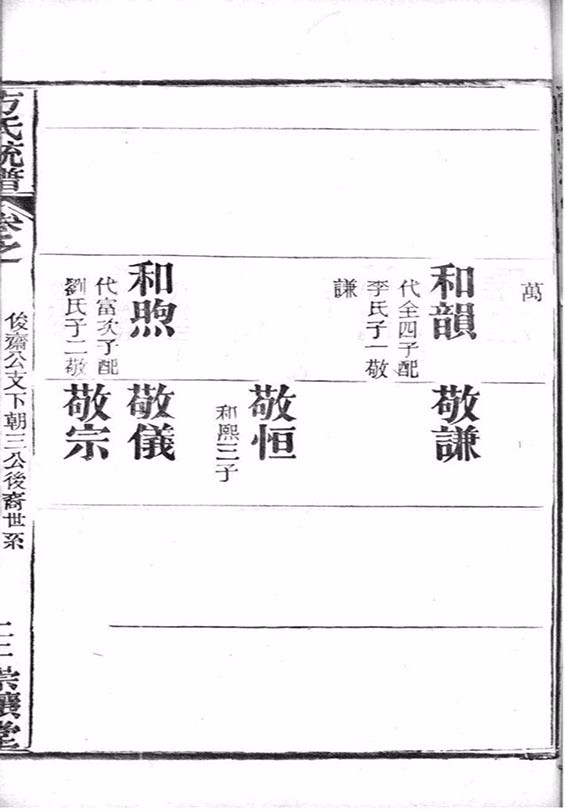 萬
和韻
代全四子配
李氏子一敬
謙
敬謙
敬恒
和熙三子
和煦
代富次子配
劉氏子二敬
敬儀
敬宗
方氏統譜
卷之一
俊齋公支下朝三公後裔世系
二三
崇讓堂